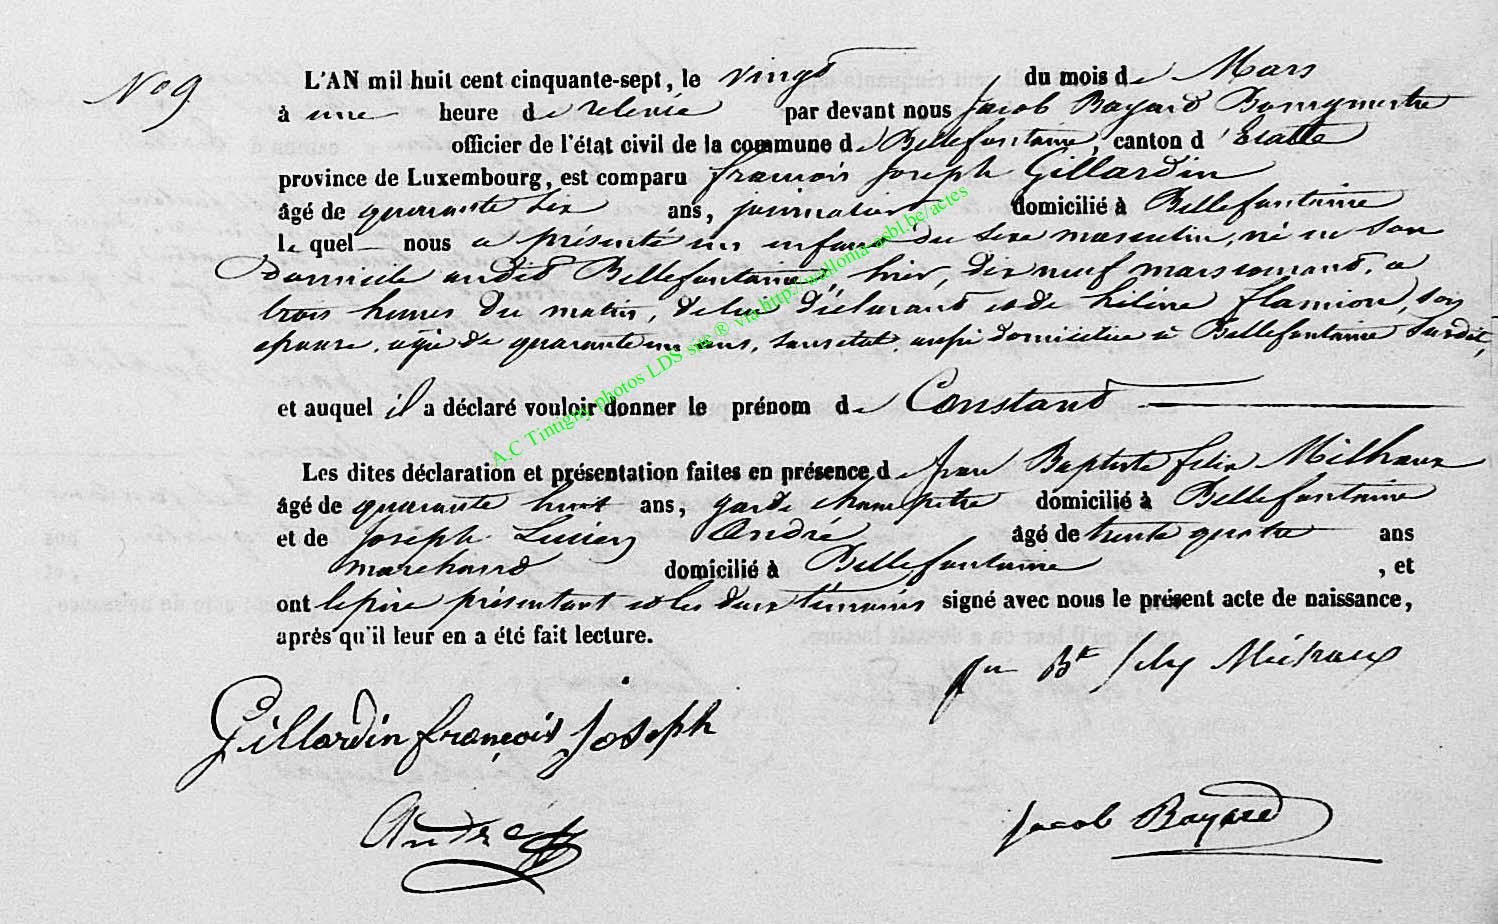 No 9
L'AN mil huit cent cinquante-sept, le vingt du mois de Mars
à une heure de relevée par devant nous Jacob Bayard Bourgmestre
officier de l'état civil de la commune de Bellefontaine, canton d'Etalle
province de Luxembourg, est comparu francois Joseph Gillardin
âgé de quarante six ans, journalier domicilié à Bellefontaine
le quel nous a présenté un enfant du sexe masculin, né en son
Domicile audit Bellefontaine, hier, dix neuf mars courant, a
trois heures du matin, de lui déclarant et de hélène flamion, son
epouse, agée de quarante un ans, sans etat, aussi domiciliée à Bellefontaine susdit,
et auquel il a déclaré vouloir donner le prénom de Constant
Les dites déclaration et présentation faites en présence de Jean Baptiste felix Milhaux
âgé de quarante huit ans, garde champetre domicilié à Bellefontaine
et de Joseph Lucien André âgé de trente quatre ans
marchand domicilié à Bellefontaine, et
ont le père présentant et les deux témoins signé avec nous le présent acte de naissance,
après qu'il leur en a été fait lecture.
Jn Bte felix
Gillardin françois Joseph
André
Jacob Bayard
A.C Tintigny photos LDS site ® via http://wallonia-asbl.be/actes